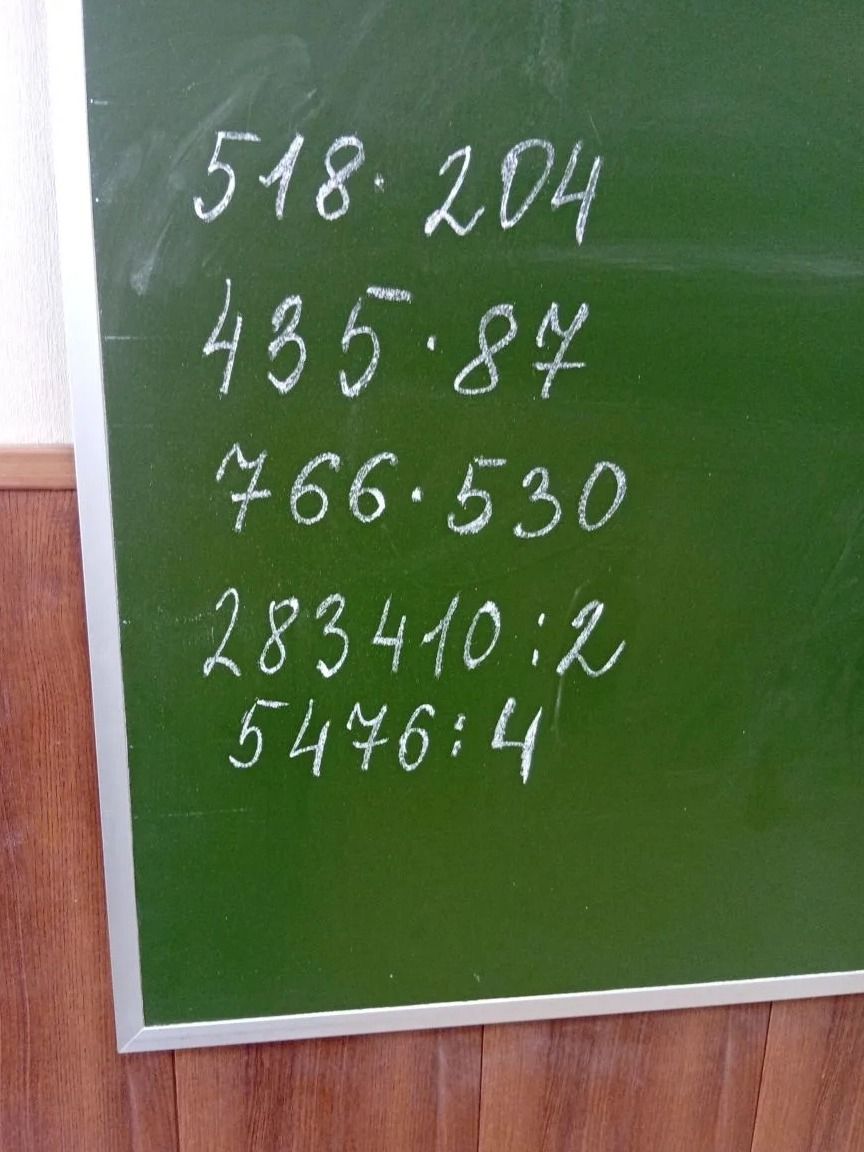 518 · 204
435 · 87
766 · 530
283410 : 2
5476 : 4